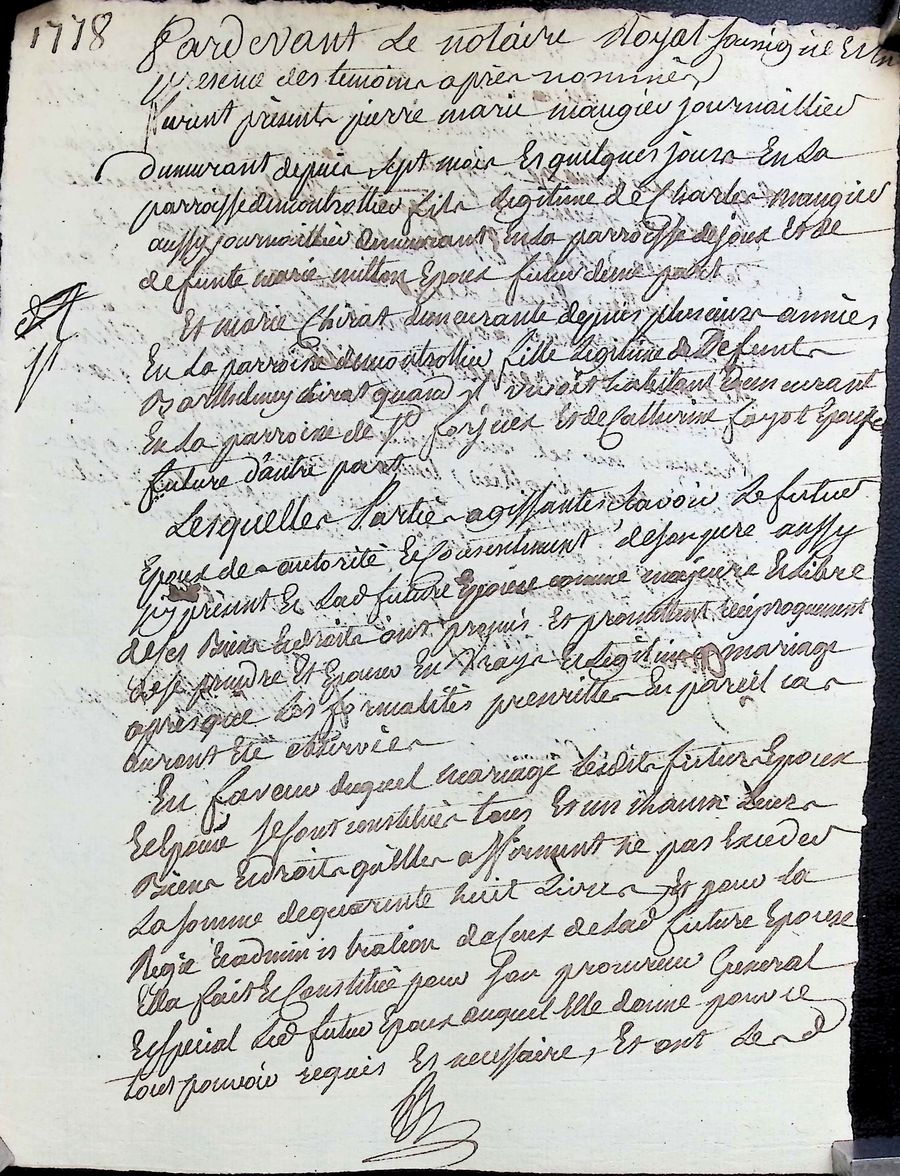 1778
Pardevant Le notaire Royal soussigné Et En
presence des temoins après nommés
furent présents pierre marie maugier journaillier
demeurant depuis sept mois Et quelques jours En La
parroisse de montrottier fils Legitime de Charles maugier
aussy journaillier demeurant En La parroisse de joux Et de
defunte marie mitton Epoux futur d'une part
Et marie Chirat demeurante depuis plusieurs années
En La parroisse de montrottier fille Legitime de Defunt
Barthelemy chirat quand il vivoit habitant Demeurant
En La parroisse de St forjeux Et de Catherine fayot Epouse
future d'autre part
Lesquelles Parties agissantes sçavoir Le futur
Epoux de autorité Et Consentement de son pere aussy
icy présent Et Lad future Epouse comme majeure Et Libre
de ses Biens Et droits ont promis Et promettent réciproquement
de se prendre Et Epouser En vray Et Legitime mariage
après que Les formalités prescrittes En pareil cas
auront été observées
En faveur duquel mariage Lesdits futurs Epoux
Et Epouse se sont constitués tous Et un chacun Leurs
Biens Et droits qu'ils affirment ne pas Exceder
La somme de quarente huit Livres Et pour La
Regie Et administration de Ceux de Lad future Epouse
Elle a fait Et Constitué pour son procureur General
Et special Led futur Epoux auquel Elle donne pour ce
tout pouvoir requis Et necessaire, Et ont Led